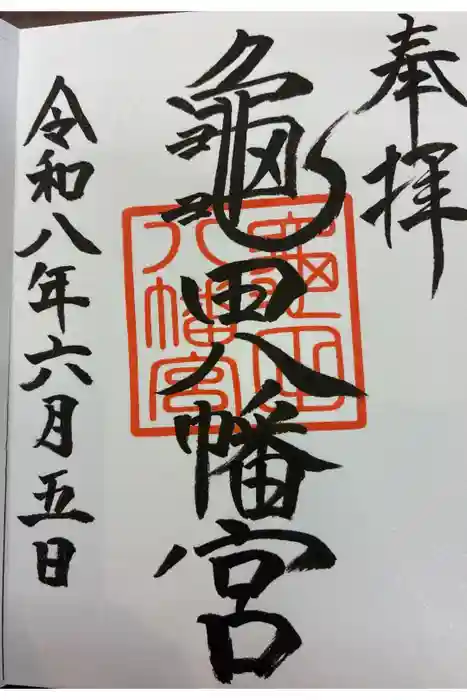 奉拝
龜田八幡宮
龜田八幡宮
令和八年六月五日